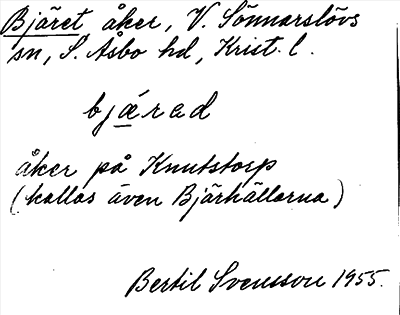 Bjäret åker, V. Sönnarslövs
sn, S. Åsbo hd, Krist. l.
bjǽrad
åker på Knutstorp
(kallas även Bjärhällorna)
Bertil Svensson 1955.